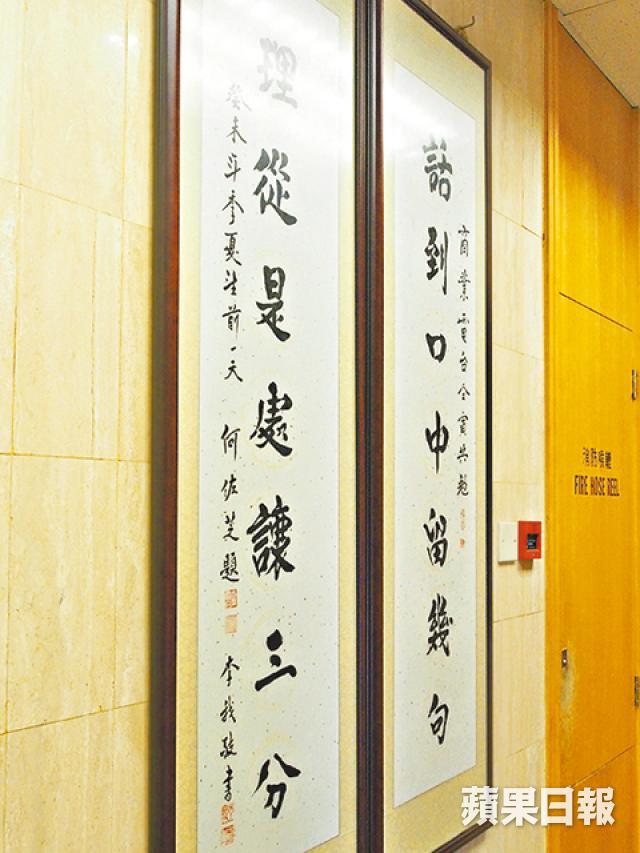 商業電台
話到口中留幾句
理從是處讓三分
癸未年季夏前一天 何佐芝題 李我敬書
消防喉轆
FIRE HOSE REEL
蘋果日報